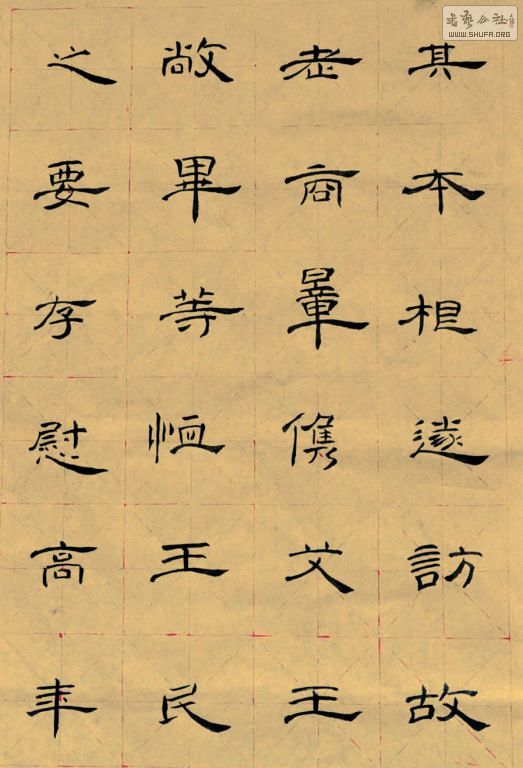 其本相遂訪故
老商暈儁艾王
敞畢等恤王民
之要存慰高年
書藝公社
WWW.SHUFA.ORG